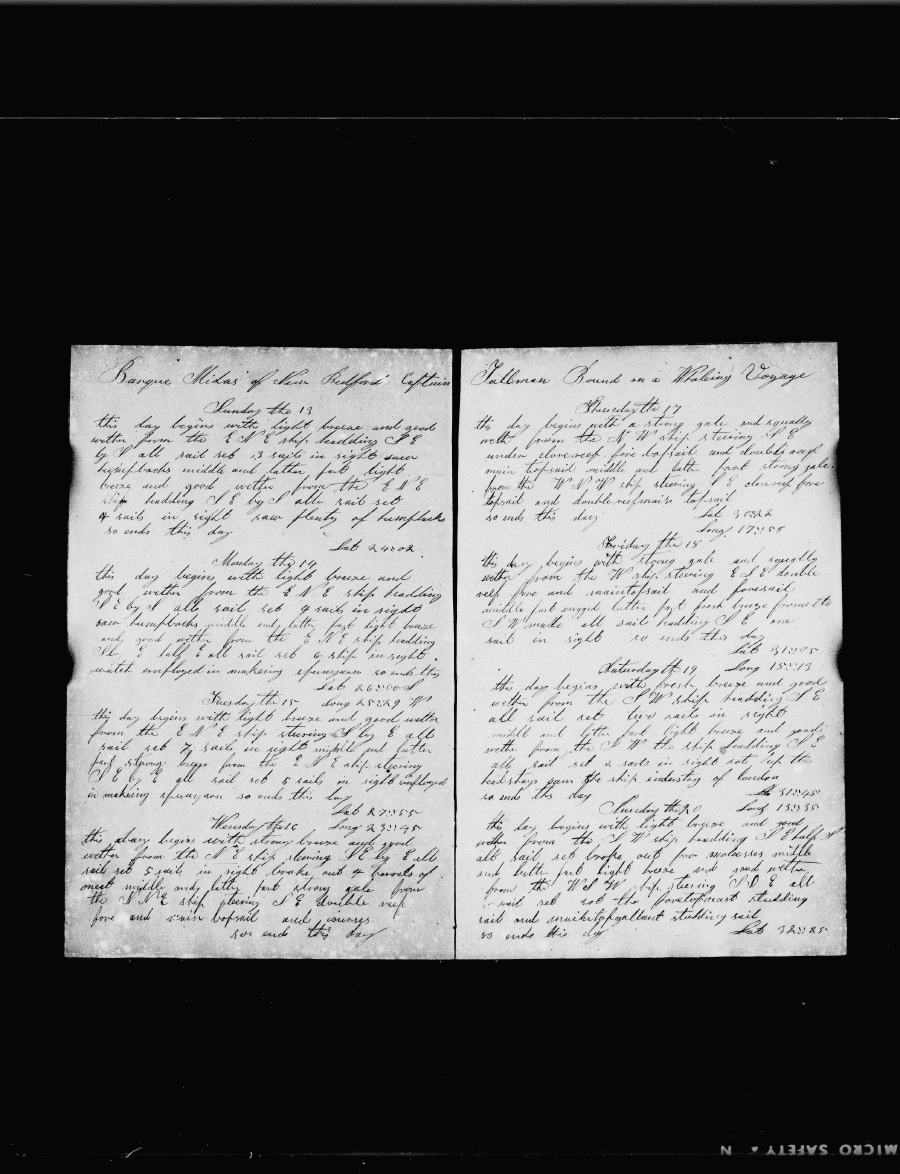 Barque Midas of New Bedford Captain
Sunday the 13
this day begins with light breeze and good
wether from the E N E ship headding S E
by S all sail set 3 sails in sight saw
humpbacks middle and latter part light
breeze and good wether from the E N E
Ship headding S E by S alle sail set
4 sails in sight saw plenty of humpbacks
so ends this day
Lat 24 02
Monday the 14
this day begins with light breeze and
good wether from the E N E ship headding
S E by S all sail set 4 sails in sight
saw humpbacks middle and latter part light breeze
and good wether from the E N E ship headding
S by E half E all sail set 6 ship in sight
watch employed in makeing spunyarn so ends this
Lat 26 00 S
Tuesday the 15 Long 25 29 W
this day begins with light breeze and good wether
from the E N E ship steering S by E all
sail set 7 sails in sight middle and latter
part strong breeze from the E N E ship steering
S E by E all sail set 5 sails in sight employed
in makeing spunyarn so ends this day
Lat 27 55
Wensday the 16 Long 23 45
this day begins with strong breeze and good
wether from the N E ship steering S E by E all
sail set 5 sails in sight broke out 4 barrels of
meat middle and latter part strong gale from
the N N E ship steering S E double reep
fore and main topsail and courses
so ends this day
Tallman Bound on a Whaleing Voyage
Thursday the 17
this day begins with a strong gale and squally
weth from the N W ship steering S E
under closereep fore topsail and double reep
main topsail middle and latter part strong gale
from the W N W ship steering S E closereep fore
topsail and doublereep main topsail
so ends this day Lat 30 22
Long 17 58
Friday the 18
this day begins with strong gale and squally
wether from the W ship steering E S E double
reep fore and maintopsail and foresail
middle part rugged latter part fresh breeze from the
S W made all sail headding S E one
sail in sight so ends this day
Lat 31 05
Saturday the 19 Long 15 13
this day begins with fresh breeze and good
wether from the S W ship headding S E
all sail set two sails in sight
middle and latter part light breeze and good
wethe from the S W the ship headding S E
all sail set 2 sails in sight set up the
headstays the ship industry of london
so ends this day Lat 31 45
Sunday the 20 Long 13 35
this day begins with light breeze and good
wether from the S W ship headding S E half S
all sail set broke out for molasses middle
and latter part light breeze and good wether
from the W S W ship steering S S E all
sail set set the foretopmast studding
sail and maintopgallant studding sail
so ends this day Lat 32 25
MICRO SAFETY N